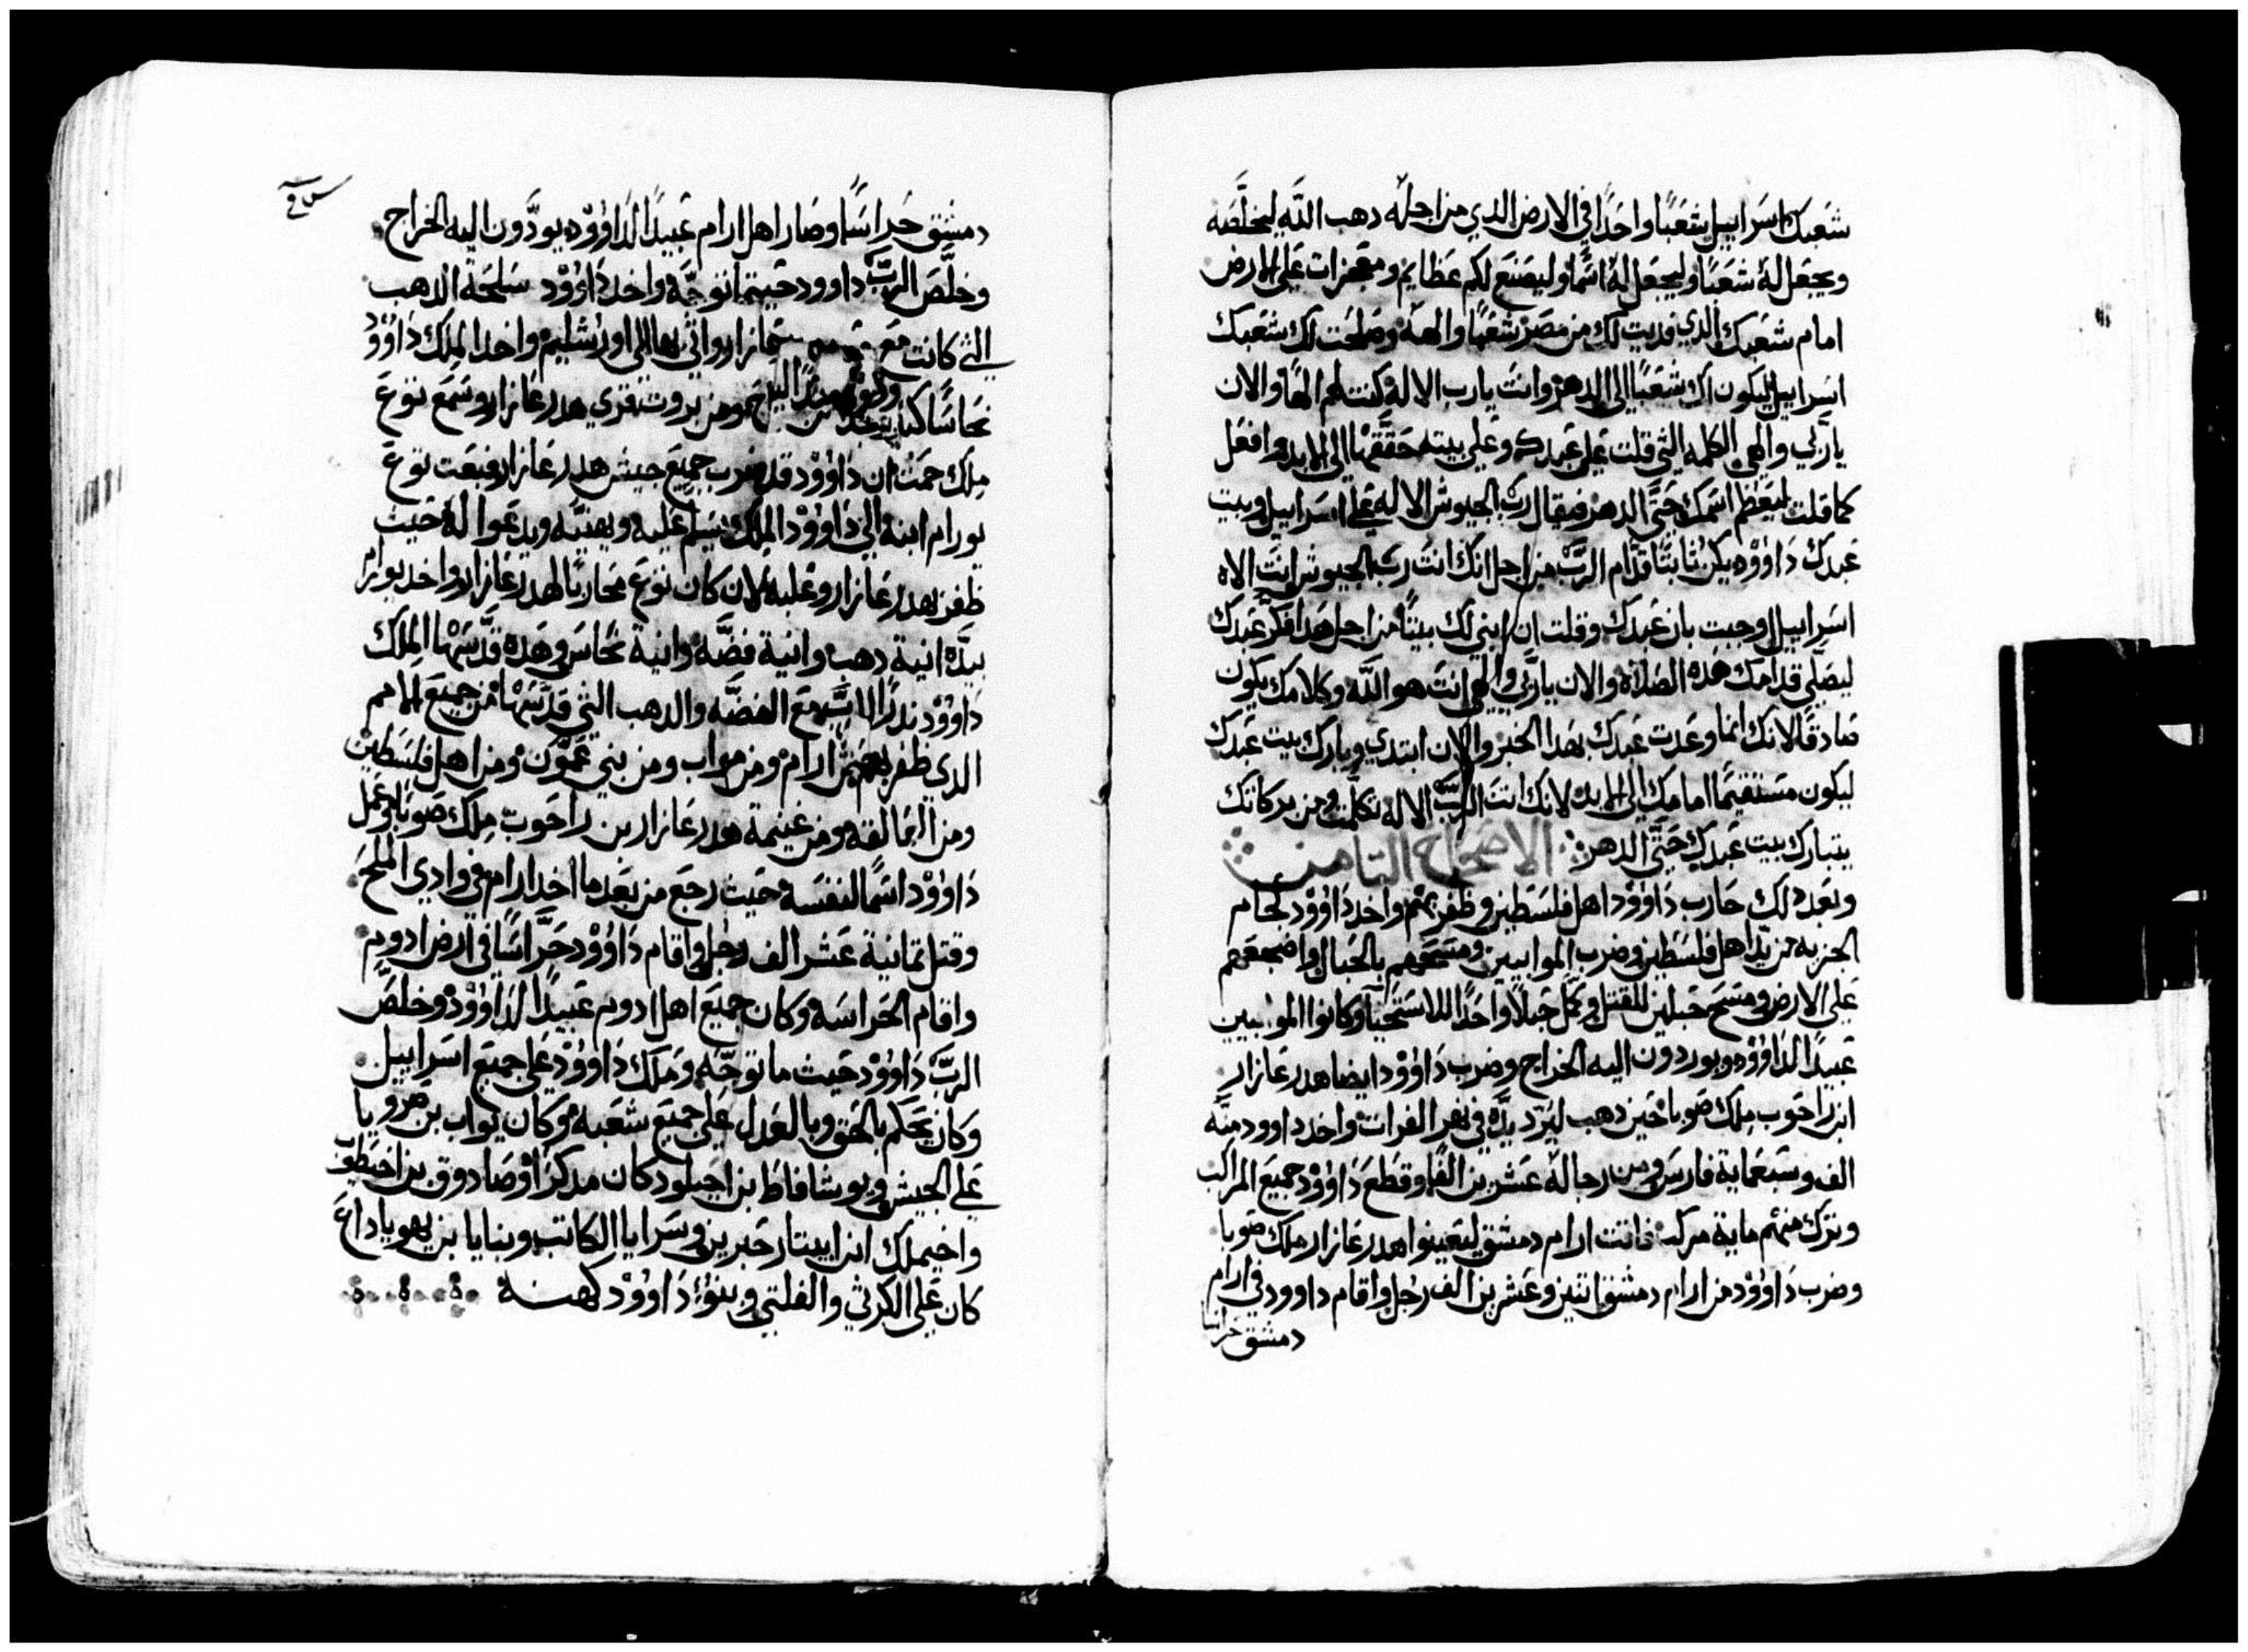 شعبك اسراييل شعبًا واحدًا في الارض الدي من اجله دهب الله ليخلصه
ويجعل له شعبًا وليجعل له اسمًا وليصنع لكم عظايم ومعجزات على الارض
امام شعبك الدي فديت لك من مصر شعبها والهه وصلحت لك شعبك
اسراييل ليكون لك شعبًا الى الدهر وانت يارب الاله كنت لهم الهًا والان
ياربي والهي الكلمه التي قلت على عبدك وعلى بيته حققها الى الابد وافعل
كما قلت ليعظم اسمك حتى الدهر فيقال رب الجيوش الاله على اسراييل وبيت
عبدك داوود يكن ثابتًا قدام الرب من اجل انك انت رب الجيوش انت الاه
اسراييل اوحيت بان عبدك وقلت ان ابني لك بيتًا من اجل هدا فكر عبدك
ليصلي قدامك هده الصلاة والان ياربي والهي انت هو الله وكلامك يكون
صادقًا لانك انما وعدت عبدك بهدا الخبر والان ابتدي وبارك بيت عبدك
ليكون مستقيمًا امامك الى الابد لانك انت الرب الاله تكلمت ومن بركاتك
يتبارك بيت عبدك حتى الدهر الاصحاح التامن
وبعد دلك حارب داوود اهل فلسطين وظفر بهم واخد داوود لجام
الجزيه من يد اهل فلسطين وضرب الموابيين ومسحهم بالحبال واضجعهم
على الارض ومسح حبلين للقتل وكمل حبلاً واحدًا للاستحيا وكانوا الموابيين
عبيدًا لداوود ويوردون اليه الخراج وضرب داوود ايضا هدرعازار
ابن راحوب ملك صوبا حين دهب ليرد يده في نهر الفرات واخد داوود منه
الف وسبعماية فارس ومن رجاله عشرين الفًا وقطع داوود جميع المراكب
وترك منهم ماية مركب فاتت ارام دمشق ليعينوا هدرعازار ملك صوبا
وضرب داوود من ارام دمشق اتنين وعشرين الف رجل واقام داوود في ارام
دمشق حراسًا
دمشق حراسًا وصار اهل ارام عبيدًا لداوود يودون اليه الخراج
وخلص الرب داوود حيتما توجه واخد داوود سلحة الدهب
التي كانت مع واتى بها الى اورشليم واخد الملك داوود
نحاسًا ومن بروت قري هدرعازار وسمع توع
ملك حمت ان داوود قد ضرب جميع جيش هدرعازار فبعت توع
يورام ابنه الى داوود الملك ليسلم عليه ويهنيه ويدعوا له حيت
ظفر بهدرعازار وغلبه لان كان توع محاربًا لهدرعازار واخد يورام
بيده انية دهب وانية فضه وانية نحاس وهده قدسها الملك
داوود ندرًا للرب مع الفضه والدهب التي قدسها من جميع الامم
الدي ظفر بهم من ارام ومن مواب ومن بني عمون ومن اهل فلسطين
ومن العمالقه ومن غنيمة هدرعازار بن راحوب ملك صوبا وعمل
داوود اسمًا لنفسه حيت رجع من بعد ما اخد ارام في وادي الملح
وقتل تمانية عشر الف رجل واقام داوود حراسًا في ارض ادوم
واقام الحراسه وكان جميع اهل ادوم عبيدًا لداوود وخلص
الرب داوود حيت ما توجه وملك داوود على جميع اسراييل
وكان يحكم بالحق وبالعدل على جميع شعبه وكان يواب بن صرويا
على الجيش ويوشافاط بن اخيلود كان مدكرًا وصادوق بن اخيطوب
واخيملك ابن ابيتار حبرين وسرايا الكاتب وبنايا بن يهوياداع
كان على الكرتي والفلتي وبنو داوود كهنه